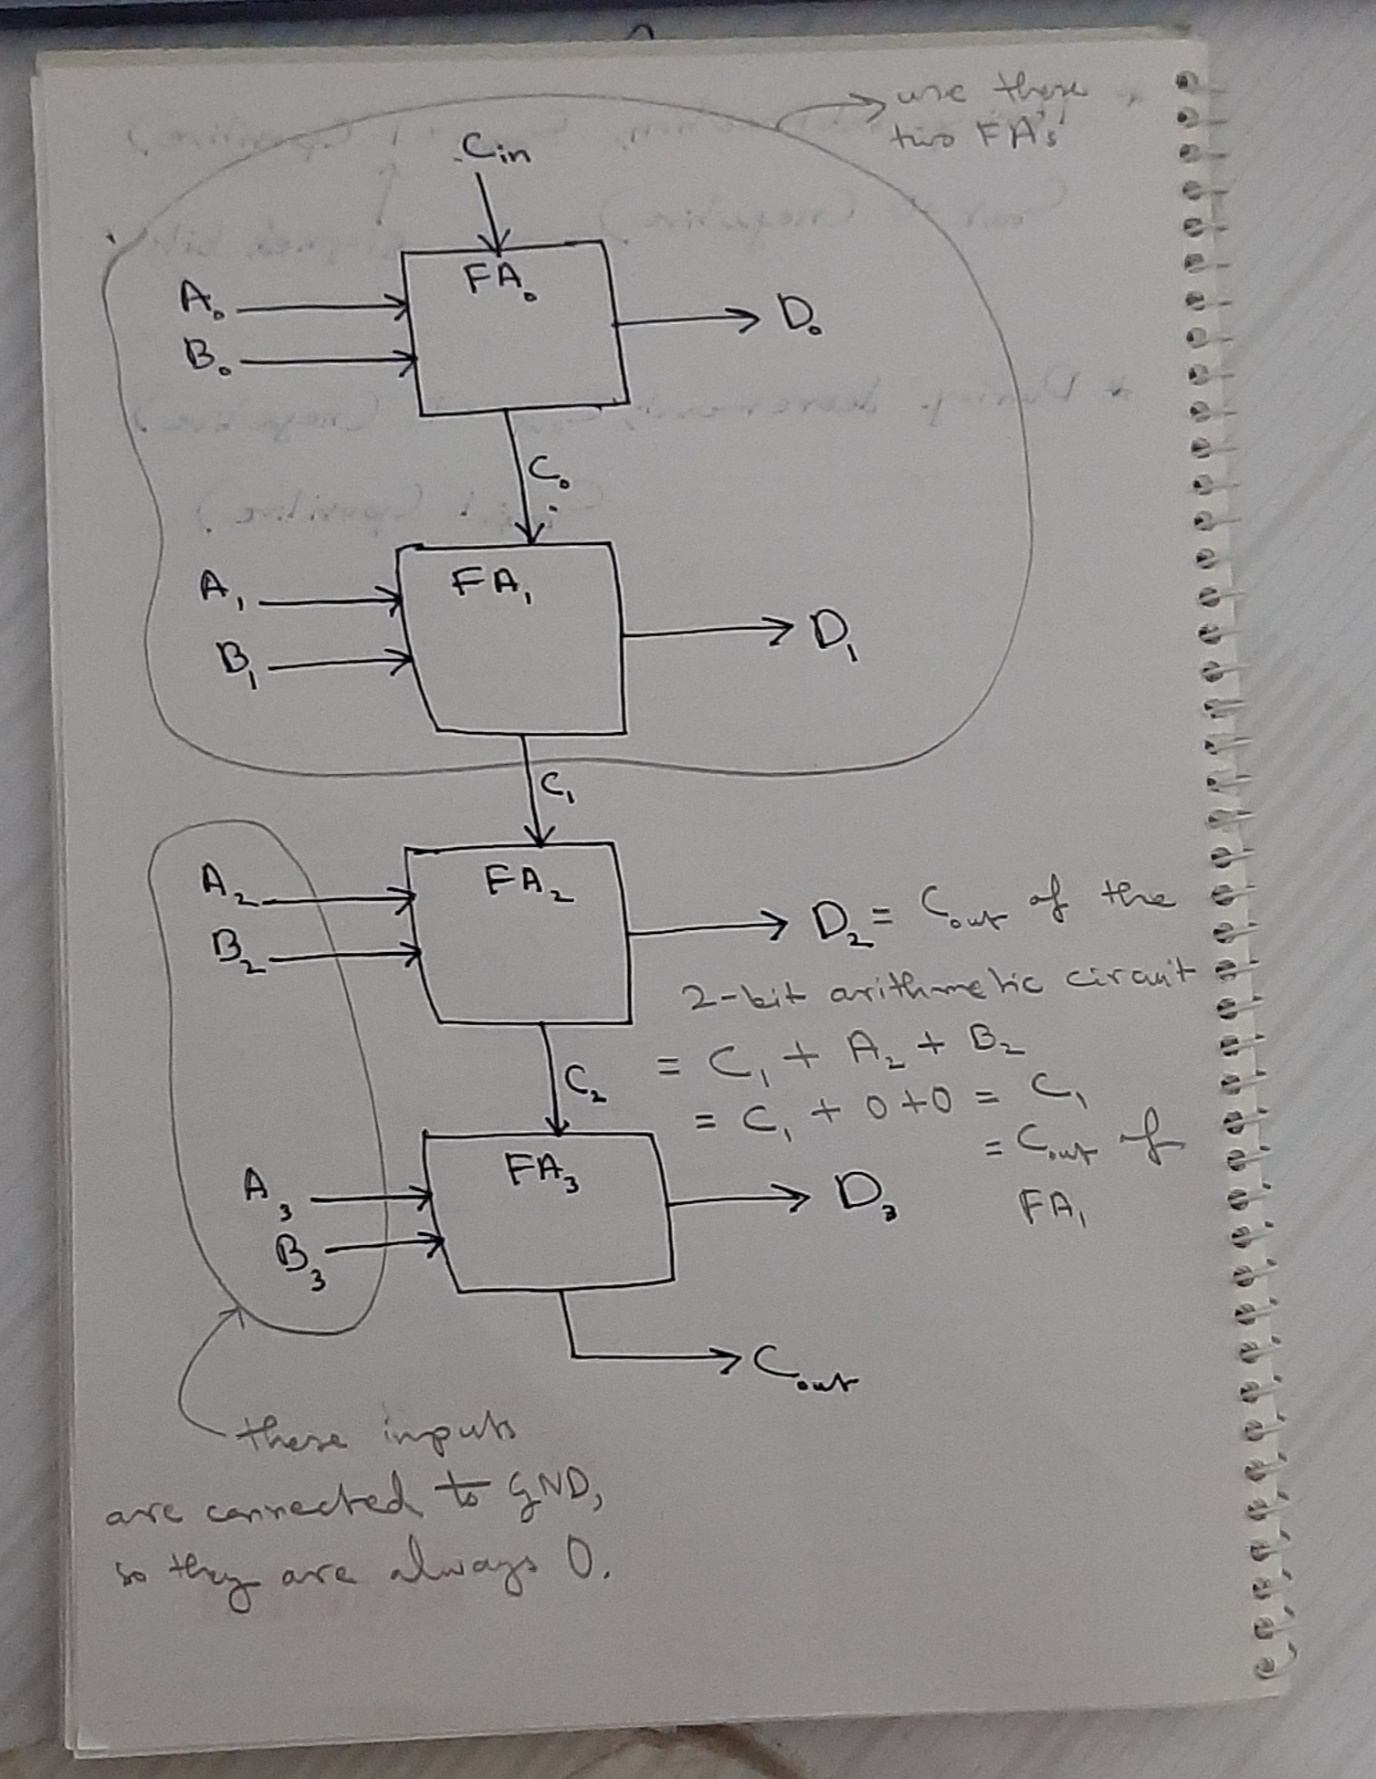 use these
two FA's
Cin
FA₀
A₀
B₀
D₀
C₀
FA₁
A₁
B₁
D₁
C₁
FA₂
A₂
B₂
D₂ = Cout of the
2-bit arithmetic circuit
= C₁ + A₂ + B₂
= C₁ + 0 + 0 = C₁
= Cout of
FA₁
C₂
FA₃
A₃
B₃
D₃
Cout
these inputs
are connected to GND,
so they are always 0.